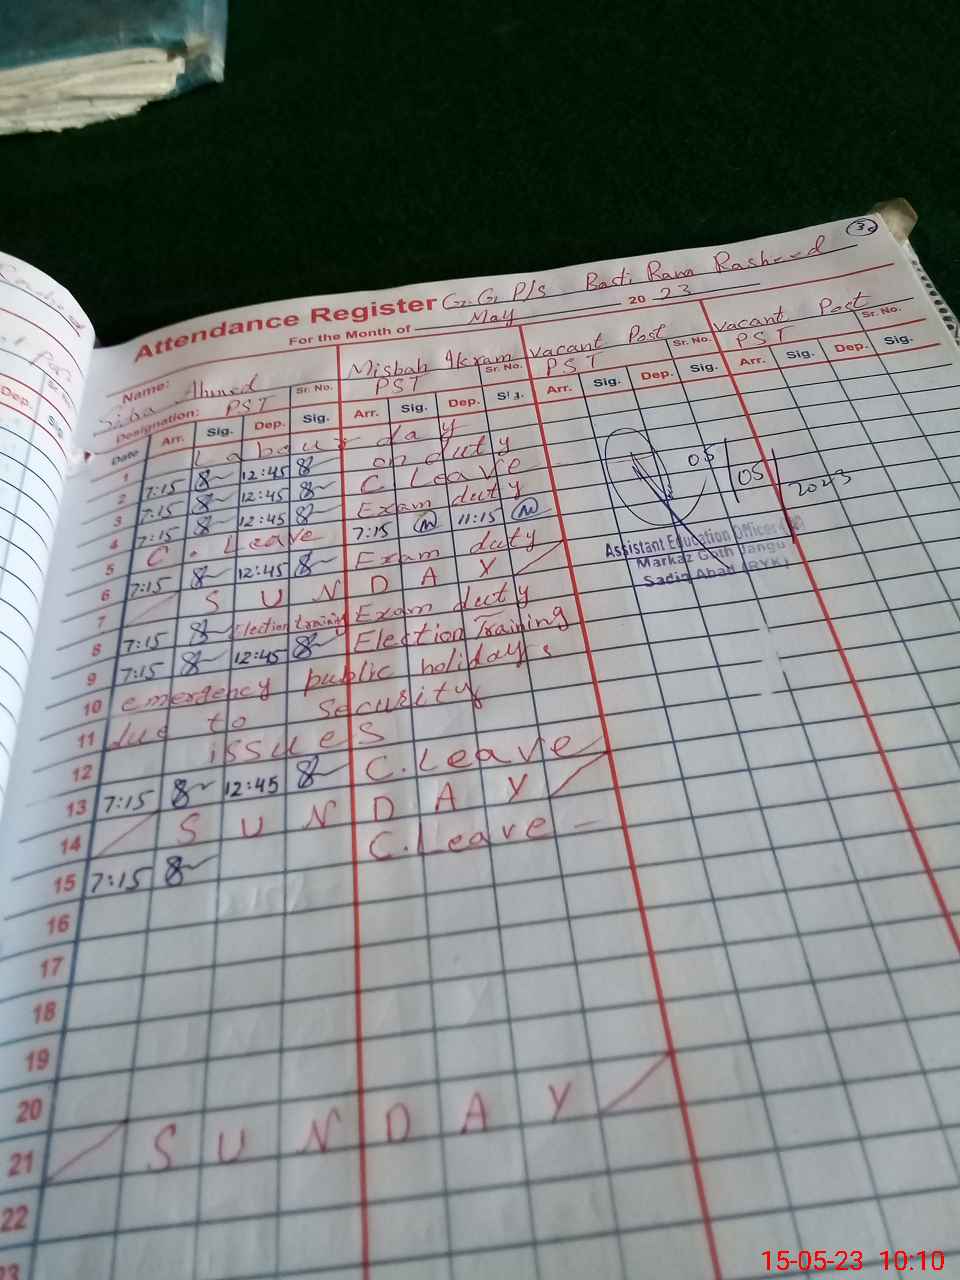 30
Attendance Register G.G. P/S Basti Rana Rasheed
For the Month of May 2023
Name: Ahmed Misbah Ikram Vacant Post Vacant Post
Sr. No. Sr. No. Sr. No. Sr. No.
Designation: PST PST PST PST
Date Arr. Sig. Dep. Sig. Arr. Sig. Dep. Sig. Arr. Sig. Dep. Sig. Arr. Sig. Dep. Sig.
1 Labour day
2 7:15 12:45 on duty
3 7:15 12:45 C. Leave
4 7:15 12:45 Exam duty
5 C. Leave 7:15 11:15
6 7:15 12:45 Exam duty
7 SUNDAY
8 7:15 Election training Exam duty
9 7:15 12:45 Election Training
10 emergency public holidays
11 due to security
12 issues
13 7:15 12:45 C. Leave
14 SUNDAY
15 7:15 C. Leave -
16
17
18
19
20
21 SUNDAY
22
23
05/05/2023
Assistant Education Officer
Markaz Goth Jangu
Sadiq Abad (RYK)
Dep.
15-05-23 10:10